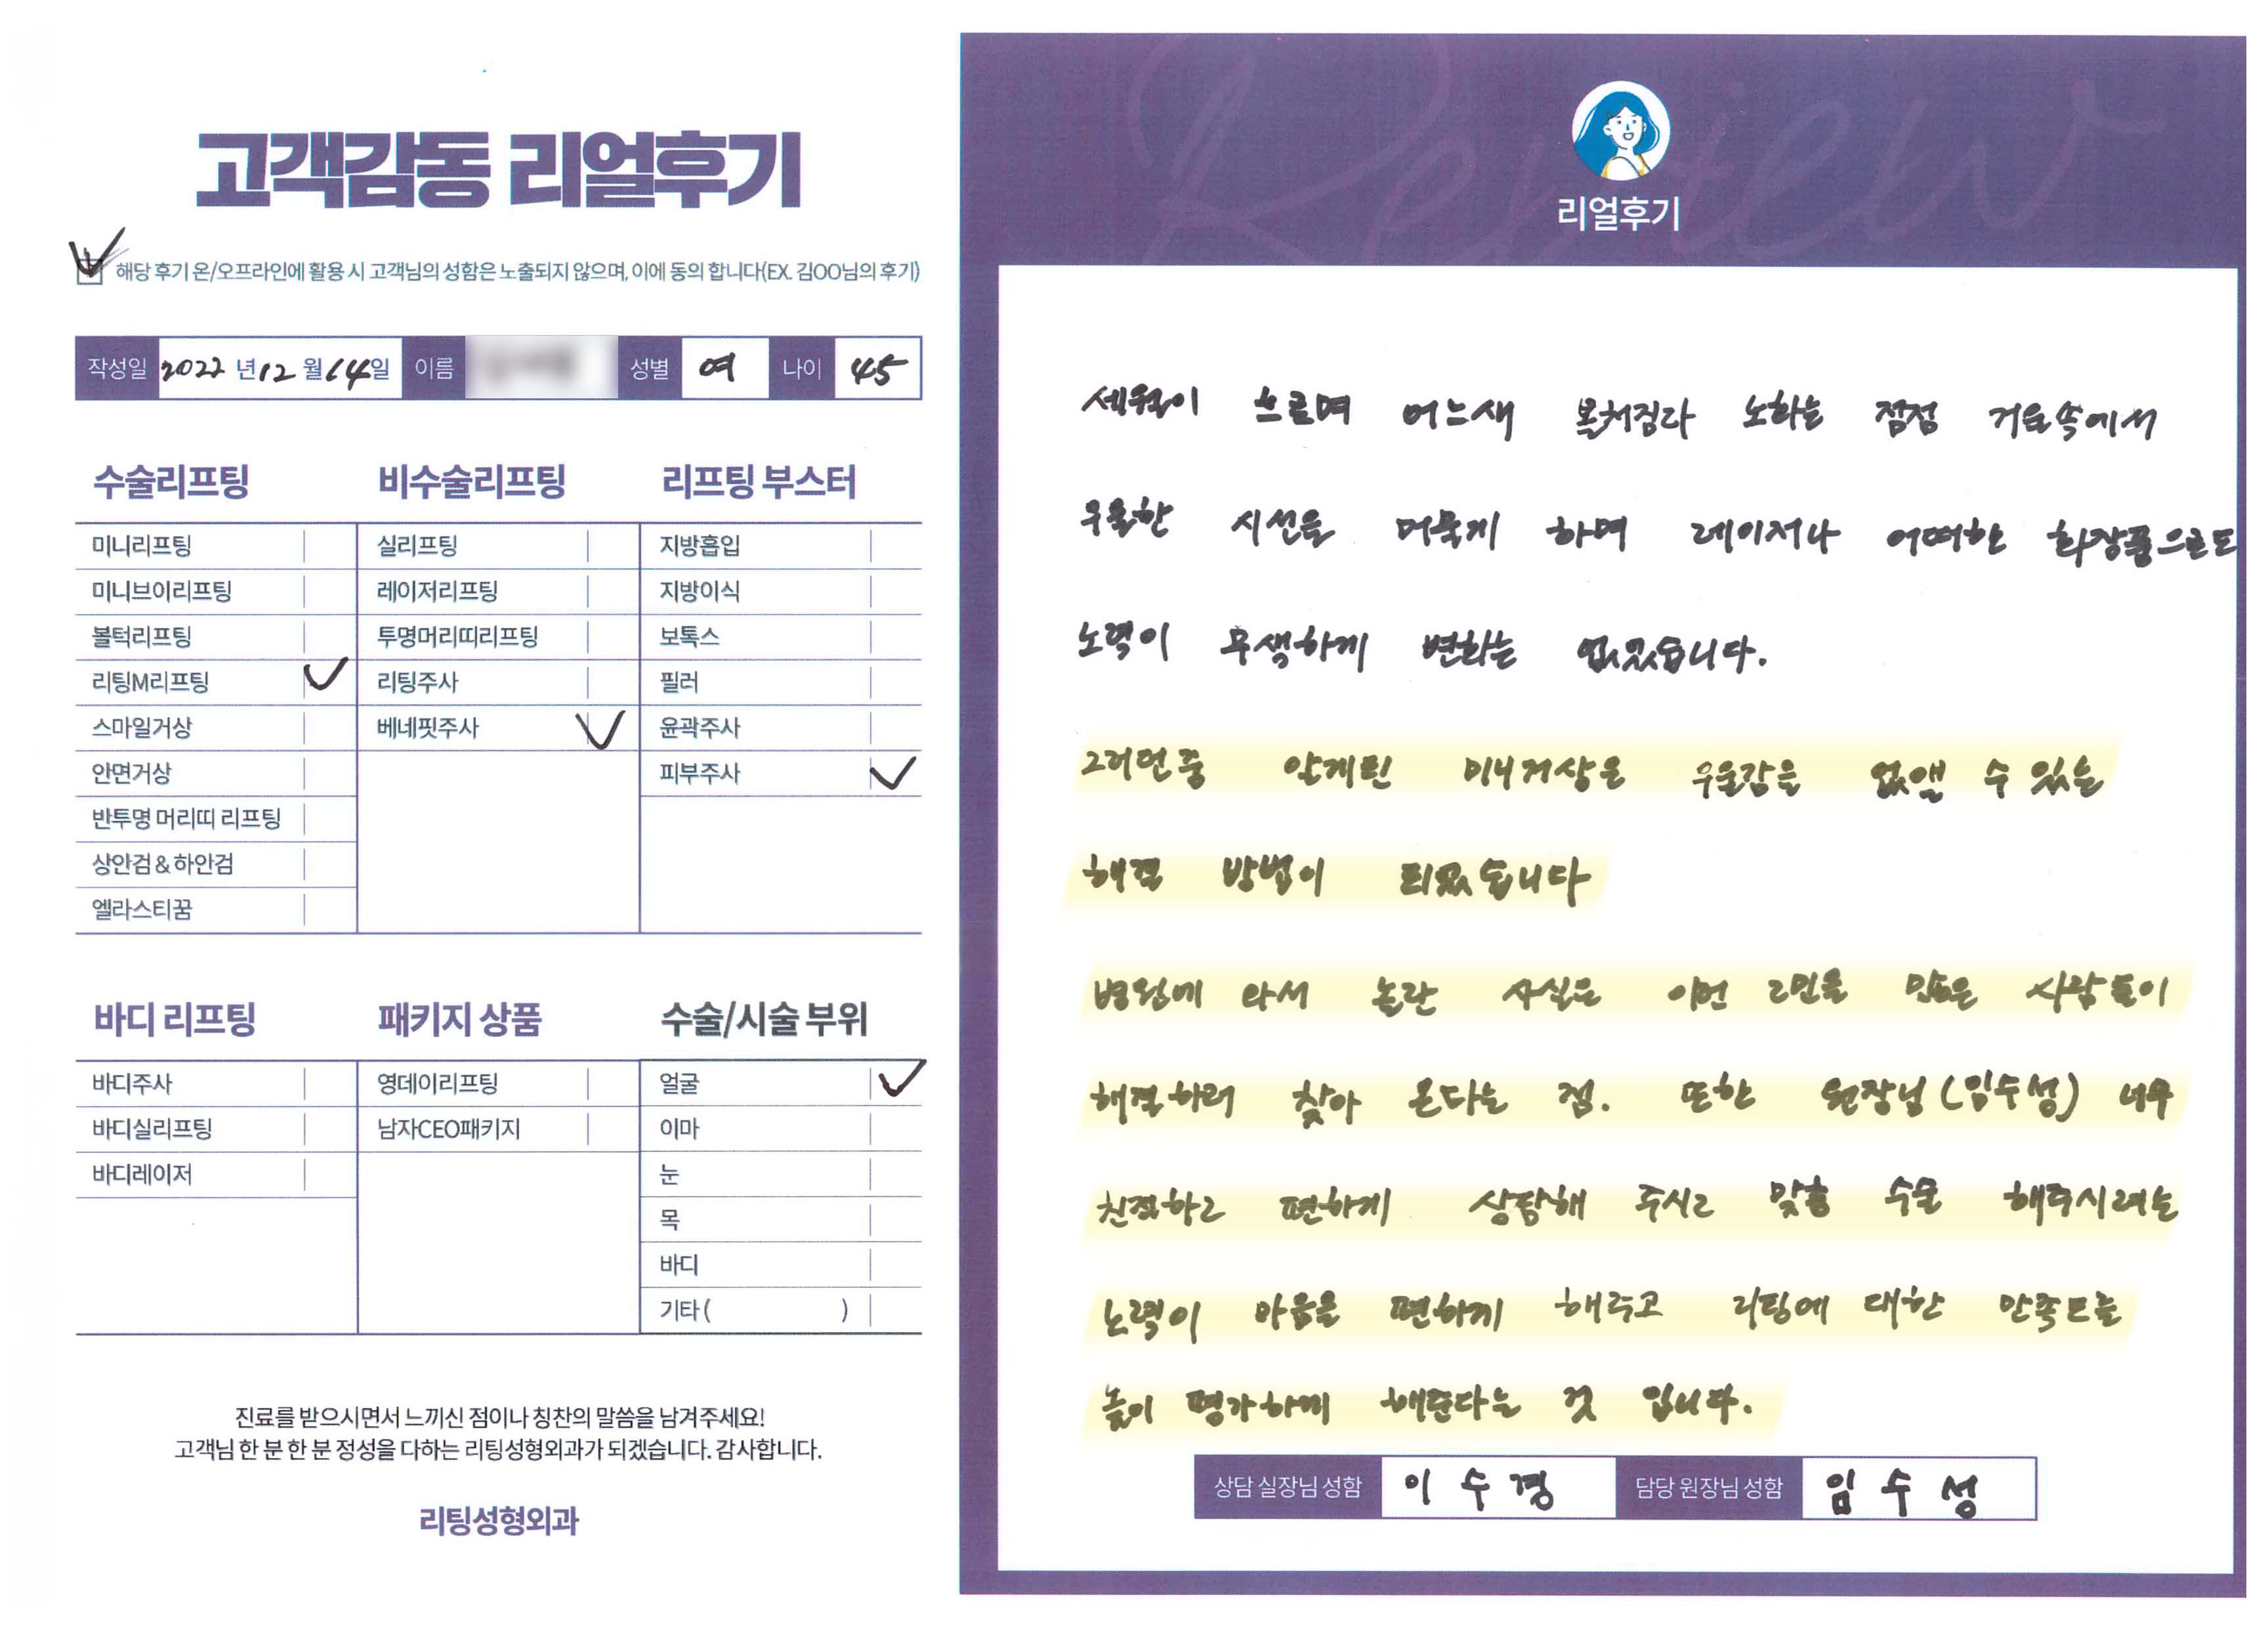 고객감동 리얼후기
해당 후기 온/오프라인에 활용 시 고객님의 성함은 노출되지 않으며, 이에 동의 합니다(EX. 김OO님의 후기)
작성일 2022 년 12 월 14 일 이름 성별 여 나이 45
수술리프팅
미니리프팅
미니브이리프팅
볼턱리프팅
리팅M리프팅
스마일거상
안면거상
반투명 머리띠 리프팅
상안검 & 하안검
엘라스티꿈
비수술리프팅
실리프팅
레이저리프팅
투명머리띠리프팅
리팅주사
베네핏주사
리프팅 부스터
지방흡입
지방이식
보톡스
필러
윤곽주사
피부주사
바디 리프팅
바디주사
바디실리프팅
바디레이저
패키지 상품
영데이리프팅
남자CEO패키지
수술/시술 부위
얼굴
이마
눈
목
바디
기타 ( )
진료를 받으시면서 느끼신 점이나 칭찬의 말씀을 남겨주세요!
고객님 한 분 한 분 정성을 다하는 리팅성형외과가 되겠습니다. 감사합니다.
리팅성형외과
Review
리얼후기
세월이 흐르며 어느새 볼처짐과 노화는 점점 거울속에서
우울한 시선을 머물게 하며 레이저나 어떠한 화장품으로도
노력이 무색하게 변화는 없었습니다.
그러던중 알게된 미니거상은 우울감을 없앨 수 있는
해결 방법이 되었습니다
병원에 와서 놀란 사실은 이런 고민을 많은 사람들이
해결하러 찾아 온다는 점. 또한 원장님(임수성) 너무
친절하고 편하게 상담해 주시고 맞춤 수술 해주시려는
노력이 마음을 편하게 해주고 리팅에 대한 만족도를
높이 평가하게 해준다는 것 입니다.
상담 실장님 성함 이수경 담당 원장님 성함 임수성